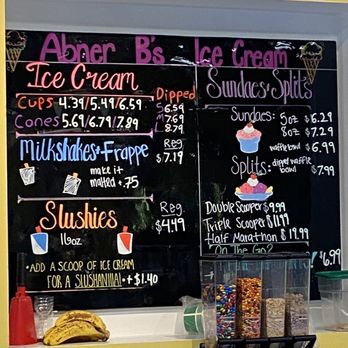 Abner B's Ice Cream
Ice Cream
Cups 4.39/5.49/6.59
Cones 5.69/6.79/7.89
Dipped
S 6.59
M 7.69
L 8.79
Milkshakes + Frappe
make it
malted +.75
Reg.
$7.19
Slushies
16oz
Reg.
$4.49
• ADD A SCOOP OF ICE CREAM
FOR A SLUSHANILLA! • +$1.40
Sundaes • Splits
Sundaes: 5oz $6.29
8oz $7.29
waffle bowl $6.99
Splits: dipped waffle
bowl $7.99
Double Scooper $9.99
Triple Scooper $11.99
Half Marathon $19.99
On The Go?